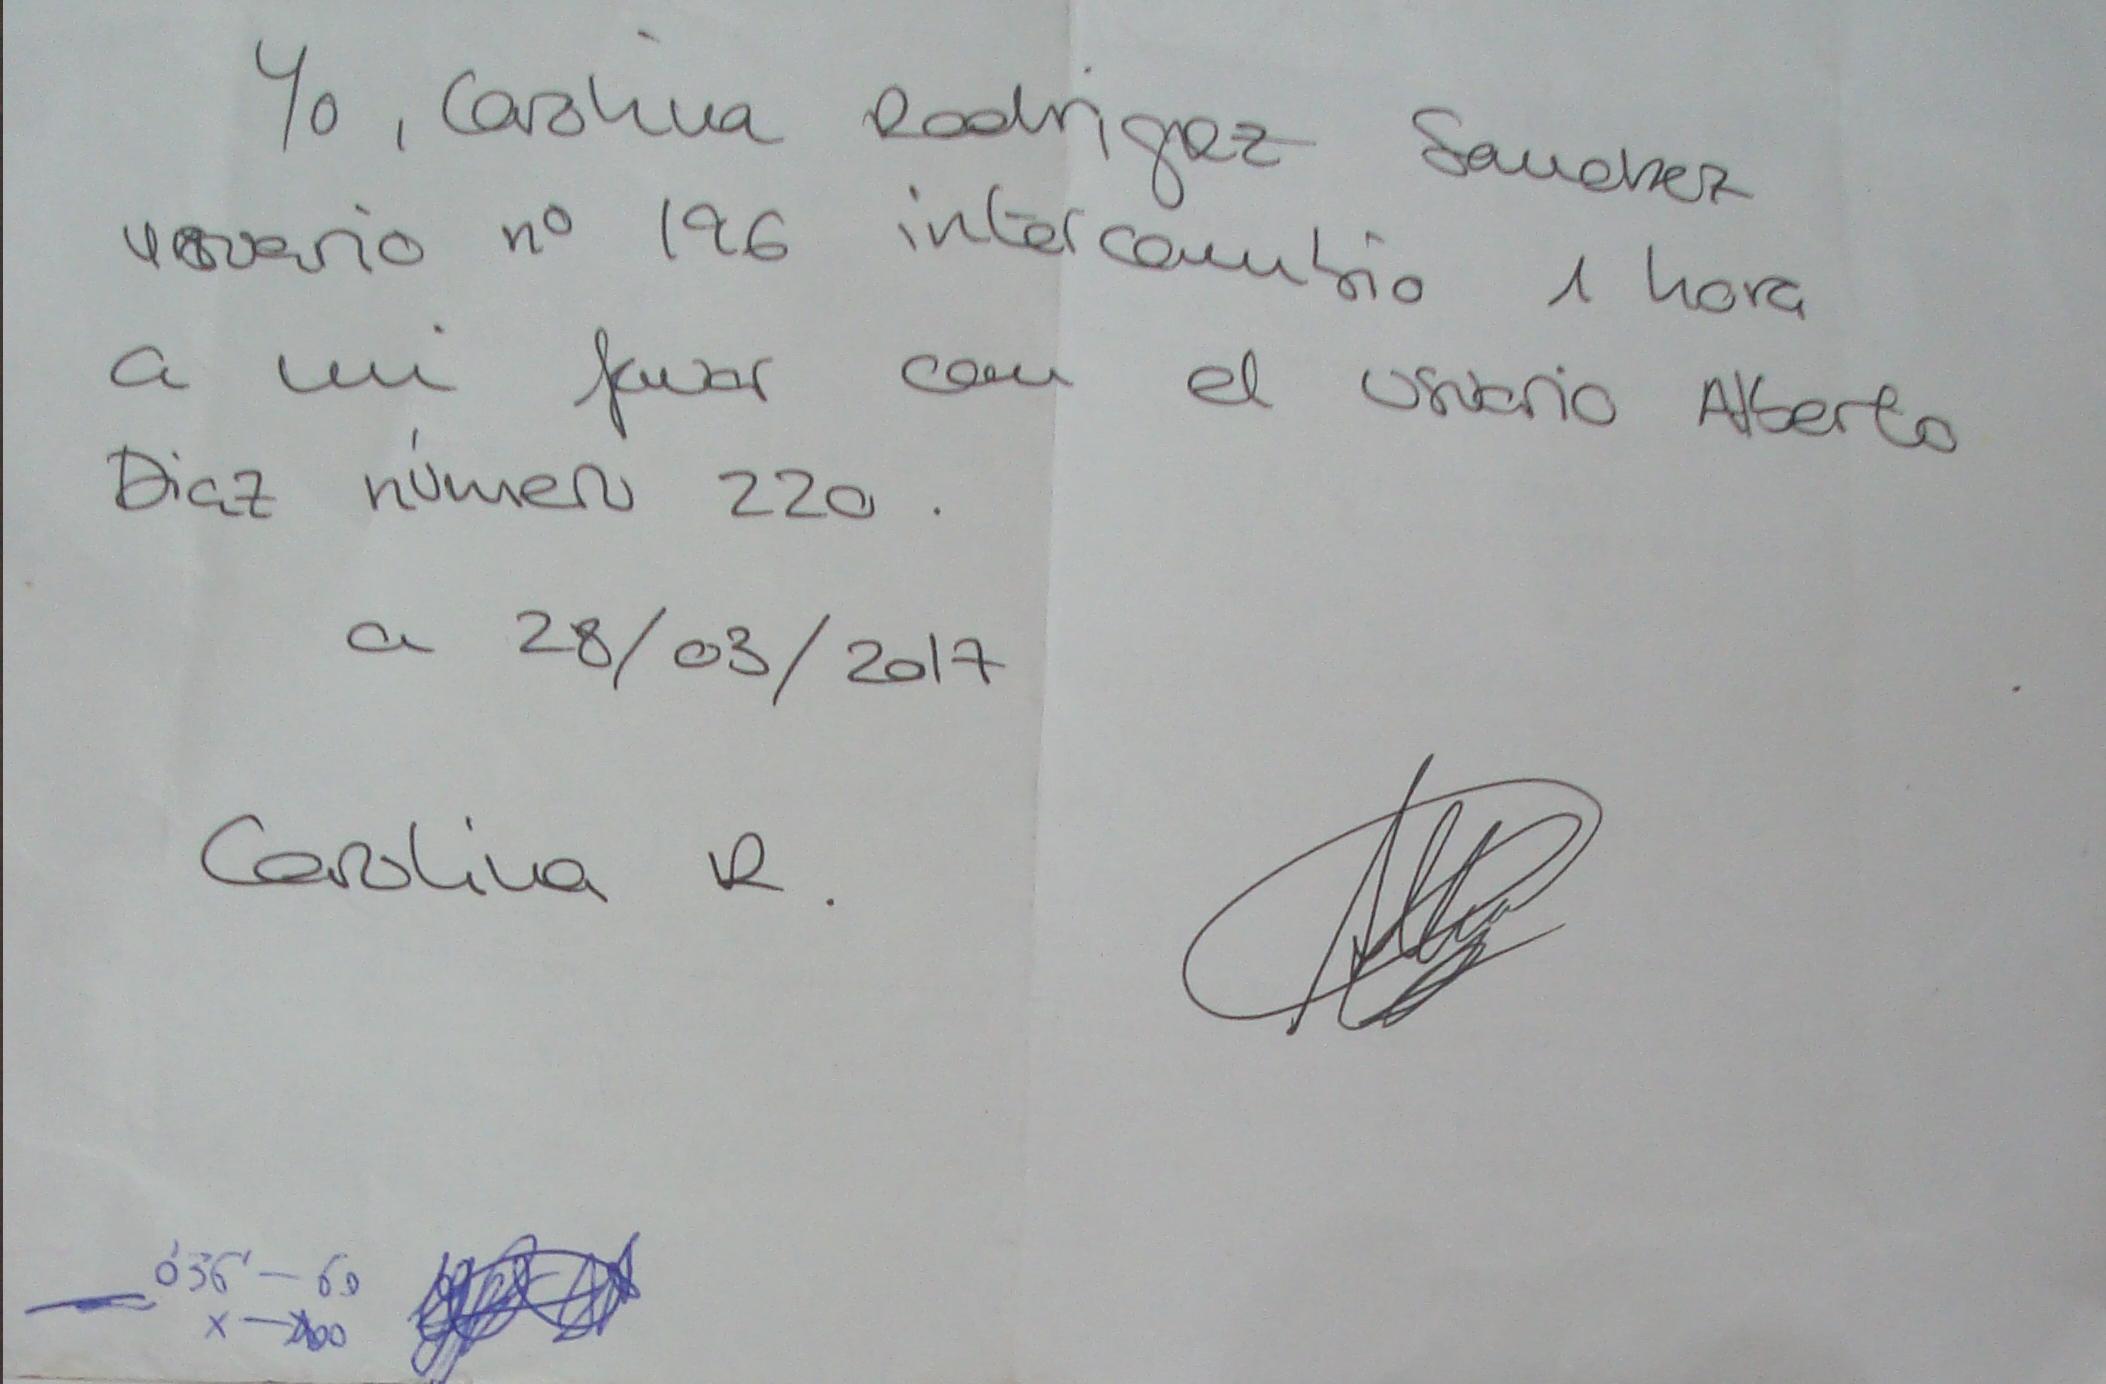 Yo, Carolina Rodrigez Sanchez
usuario nº 196 intercambio 1 hora
a mi favor con el usuario Alberto
Diaz número 220.
a 28/03/2017
Carolina R.
x — 100